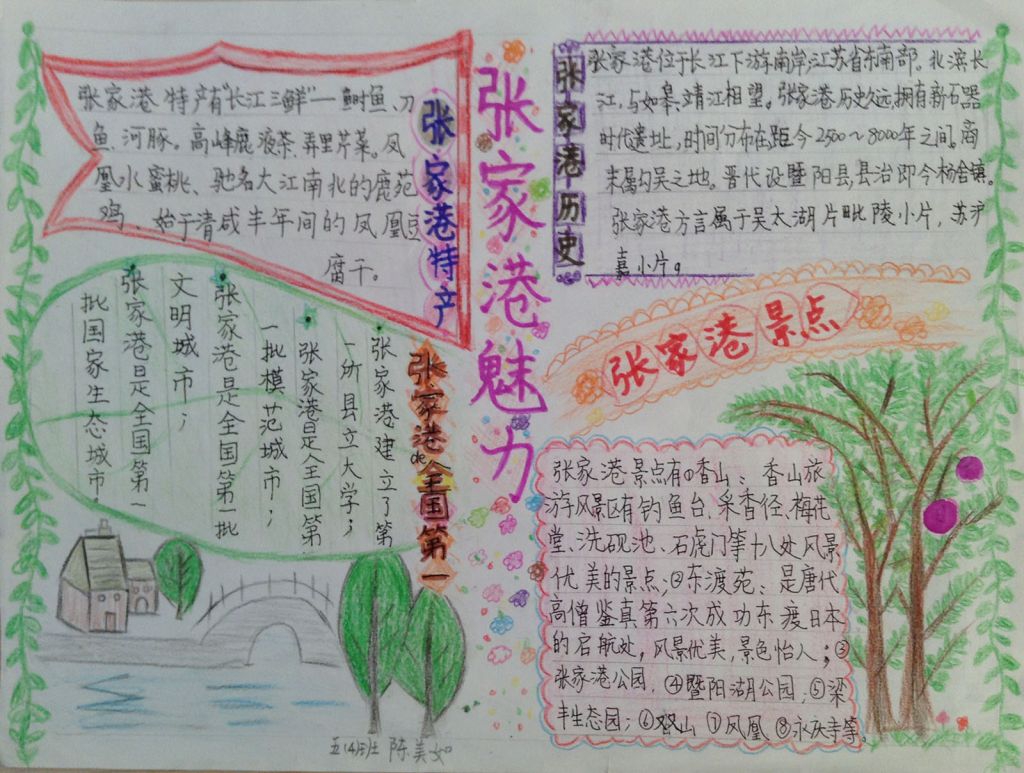 张家港魅力
张家港特产
张家港特产有“长江三鲜”—鲥鱼、刀
鱼、河豚。高峰鹿液茶、弄里芹菜。凤
凰水蜜桃、驰名大江南北的鹿苑
鸡、始于清咸丰年间的凤凰豆
腐干。
张家港历史
张家港位于长江下游南岸,江苏省东南部。北滨长
江,与如皋、靖江相望。张家港历史久远,拥有新石器
时代遗址,时间分布在距今2500~8000年之间。商
末属勾吴之地。晋代设暨阳县,县治即今杨舍镇。
张家港方言属于吴太湖片毗陵小片,苏沪
嘉小片。
张家港de全国第一
张家港建立了第
一所县立大学;
张家港是全国第
一批模范城市;
张家港是全国第一批
文明城市;
张家港是全国第一
批国家生态城市;
张家港景点
张家港景点有①香山:香山旅
游风景区有钓鱼台、采香径、梅花
堂、洗砚池、石虎门等十八处风景
优美的景点;②东渡苑:是唐代
高僧鉴真第六次成功东渡日本
的启航处,风景优美,景色怡人;③
张家港公园,④暨阳湖公园,⑤梁
丰生态园;⑥双山⑦凤凰⑧永庆寺等。
五(4)班 陈美如